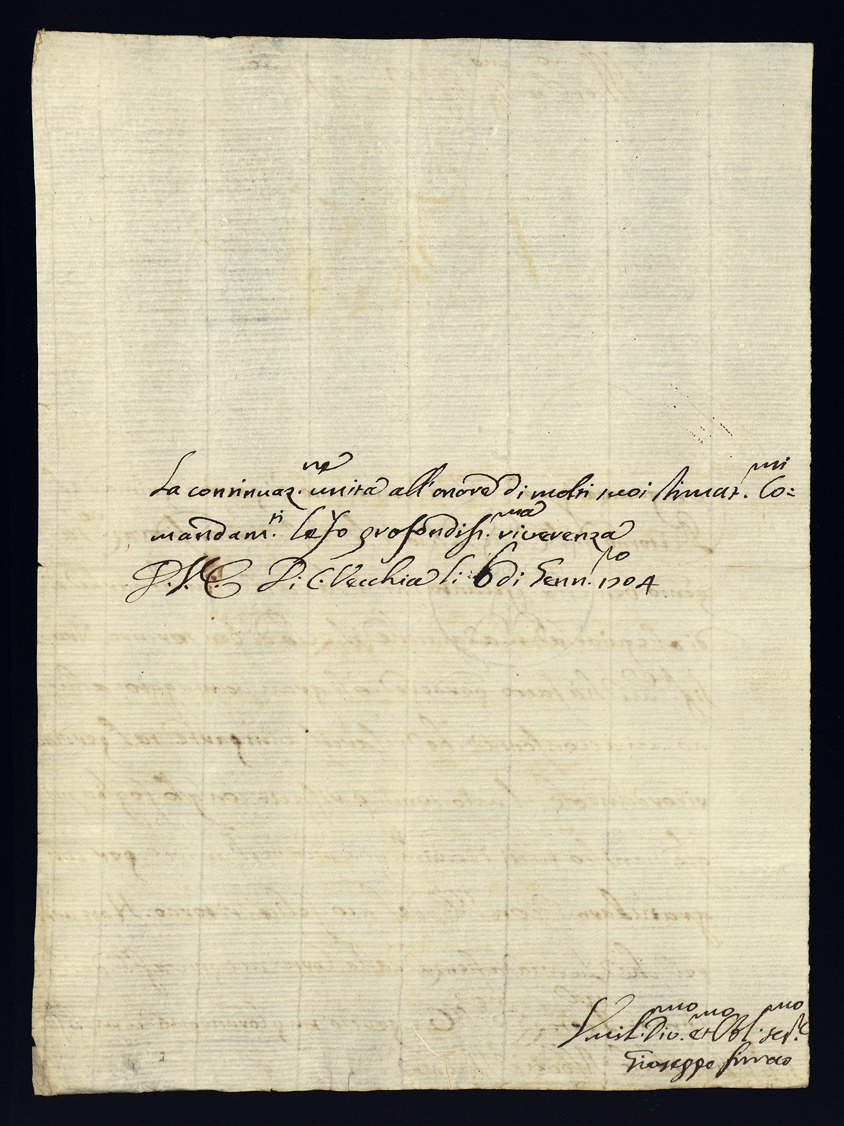 La continuaz.ne unita all'onore di molti suoi stimat.mi Co=
mandam.ti le fo profondiss.ma riverenza
D. V. E. Di C. Vecchia li 6 di Genn.ro 1704
Umil.mo Div.mo et Obl.mo ser.e
Gioseppe